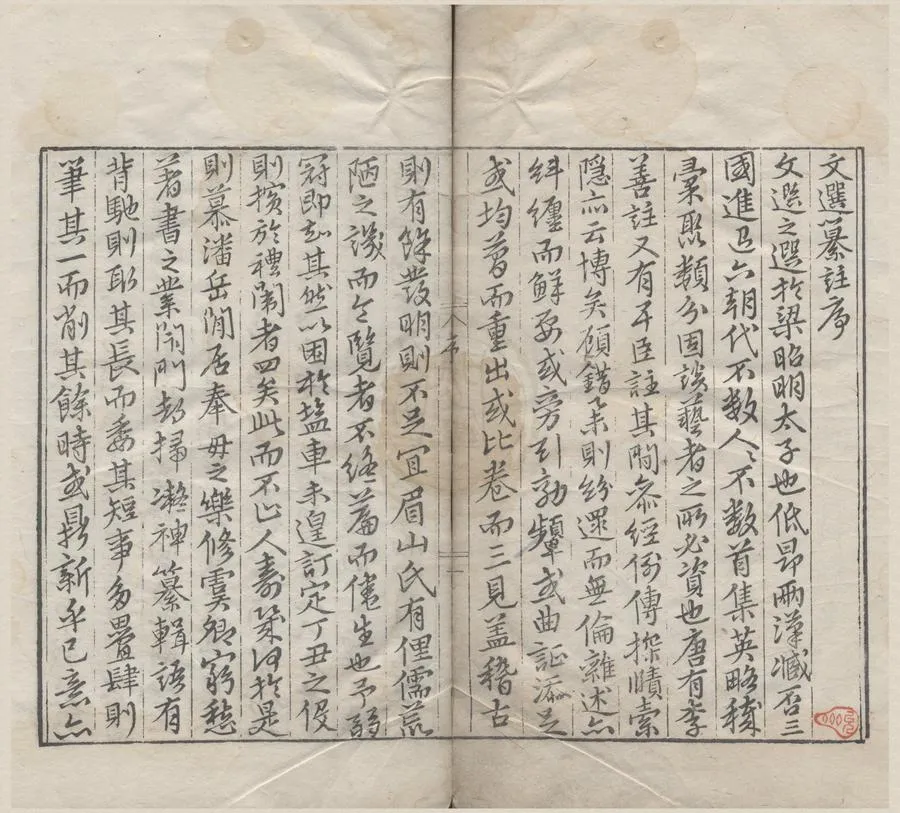 文選纂註序
文選之選於梁昭明太子也低昂兩漢臧否三
國進退六朝代不数人々不数首集英略穢
彙聚類分固談藝者之所必資也唐有李
善註又有五臣註其間參經倫傳探賾索
隱亦云博矣顧錯采則紛遝而無倫雜述亦
糾纏而鮮要或旁引効顰或曲証添足
或均旨而重出或比卷而三見盖稽古
則有餘發明則不足宜眉山氏有俚儒荒
陋之譏而令覽者不終篇而倦生也予弱
冠即知其然以困於塩車未遑訂定丁丑之役
則擯於禮闈者四矣此而不止人壽幾何於是
則慕潘岳閒居奉母之樂修虞卿窮愁
著書之業閉門却掃凝神纂輯語有
背馳則取其長而委其短事多疊肆則
筆其一而削其餘時或鼎新乎已意亦
序
一